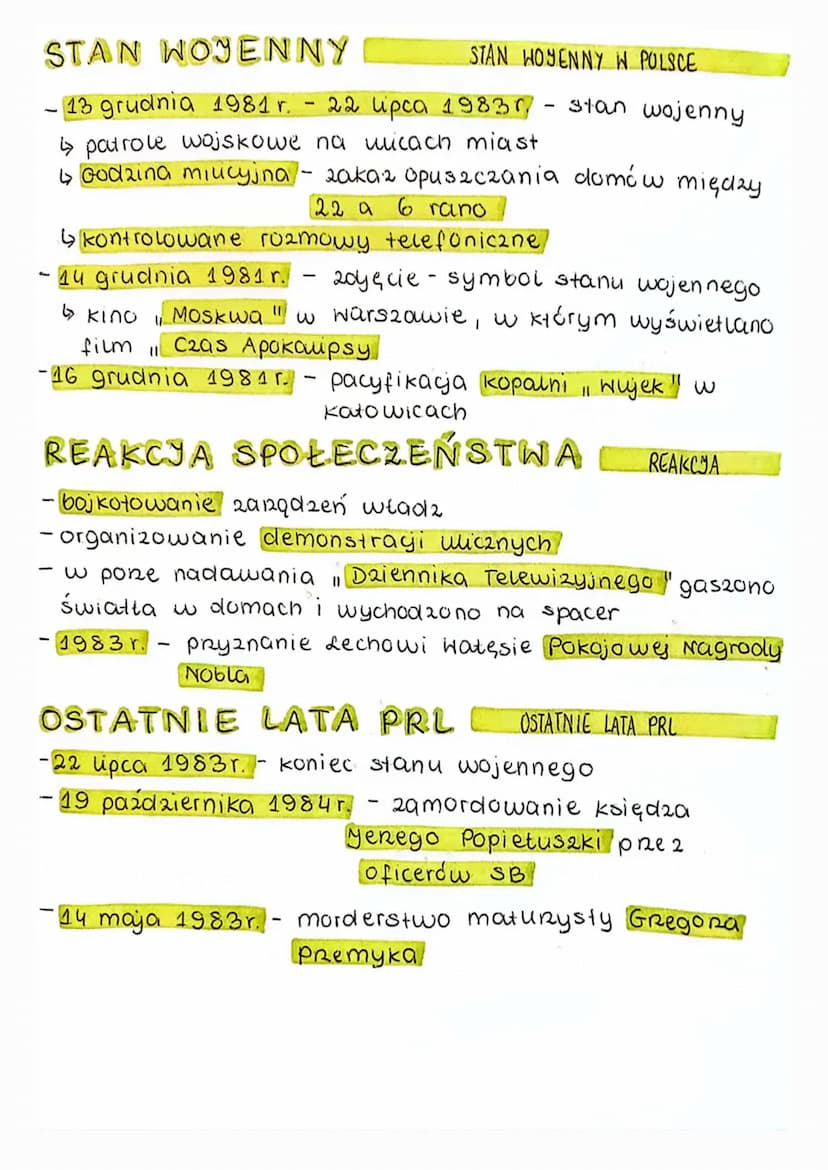 STAN WOJENNY STAN WOJENNY W POLSCE
- 13 grudnia 1981 r. - 22 lipca 1983 r. - stan wojenny
↳ patrole wojskowe na ulicach miast
↳ Godzina milicyjna - zakaz opuszczania domów między
22 a 6 rano
↳ kontrolowane rozmowy telefoniczne
- 14 grudnia 1981 r. - zdjęcie - symbol stanu wojennego
↳ kino „Moskwa" w Warszawie, w którym wyświetlano
film „Czas Apokalipsy
- 16 grudnia 1981 r. - pacyfikacja kopalni „Wujek" w
Katowicach
REAKCJA SPOŁECZEŃSTWA REAKCJA
- bojkotowanie zarządzeń władz
- organizowanie demonstracji ulicznych
- w porze nadawania „Dziennika Telewizyjnego" gaszono
światła w domach i wychodzono na spacer
- 1983 r. - przyznanie Lechowi Wałęsie Pokojowej Nagrody
Nobla
OSTATNIE LATA PRL OSTATNIE LATA PRL
- 22 lipca 1983 r. - koniec stanu wojennego
- 19 października 1984 r. - zamordowanie księdza
Jerzego Popiełuszki przez
oficerów SB
- 14 maja 1983 r. - morderstwo maturzysty Grzegorza
Przemyka